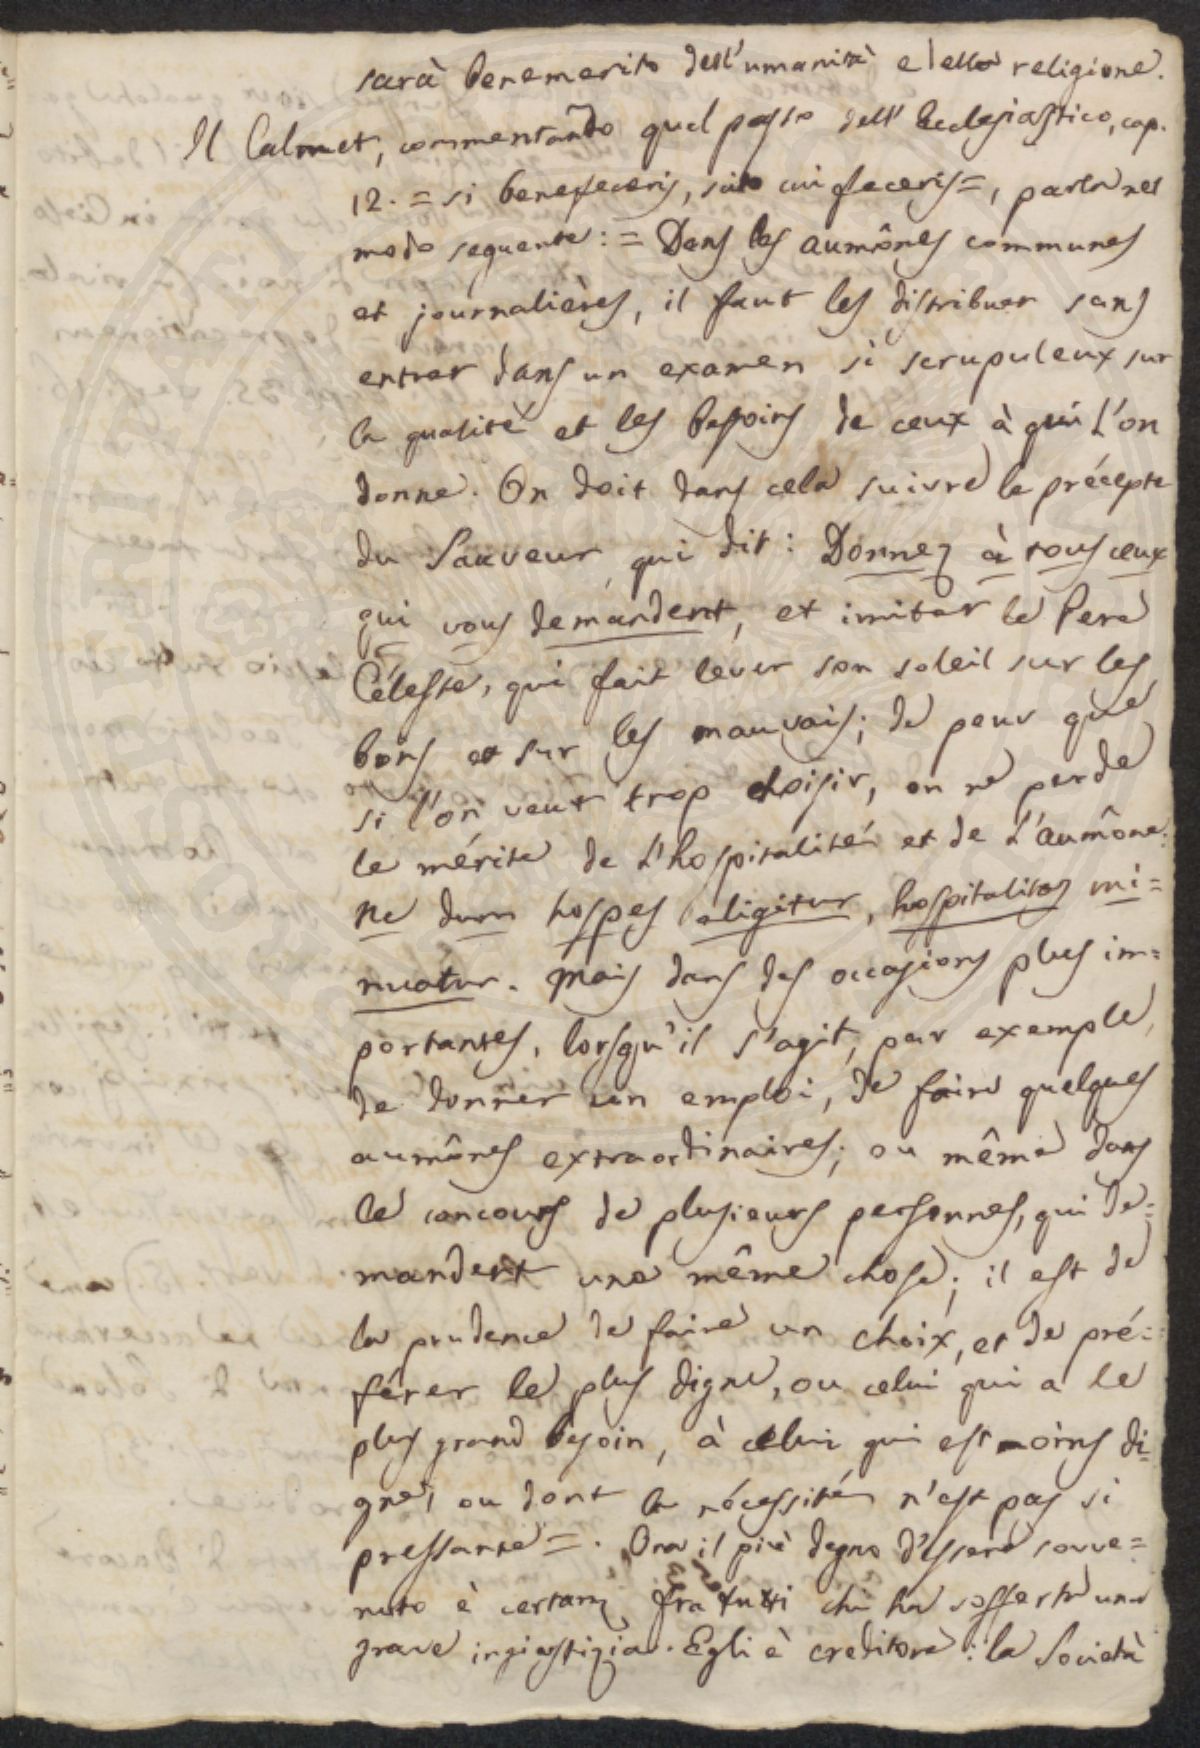 sarà benemerito dell'umanità e della religione.
Il Calmet, commentando quel passo dell'Ecclesiastico, cap.
12. = si benefeceris, scito cui feceris =, parla nel
modo seguente: = Dans les aumônes communes
et journalières, il faut les distribuer sans
entrer dans un examen si scrupuleux sur
la qualité et les besoins de ceux à qui l'on
donne. On doit dans cela suivre le précepte
du Sauveur, qui dit: Donnez à tous ceux
qui vous demandent, et imiter le Pere
Céleste, qui fait lever son soleil sur les
bons et sur les mauvais; de peur que
si l'on veut trop choisir, on ne perde
le mérite de l'hospitalité et de l'aumône:
ne dum hospes eligitur, hospitalitas mi=
nuatur. Mais dans des occasions plus im=
portantes, lorsqu'il s'agit, par exemple,
de donner un emploi, de faire quelques
aumônes extraordinaires; ou même dans
le concours de plusieurs personnes, qui de=
mandent une même chose; il est de
la prudence de faire un choix, et de pré=
férer le plus digne, ou celui qui a le
plus grand besoin, à celui qui est moins di=
gne, ou dont la nécessité n'est pas si
pressante =. Ora il più degno d'essere sovve=
nuto è certam. fra tutti chi ha sofferto una
grave ingiustizia. Egli è creditore: la Società